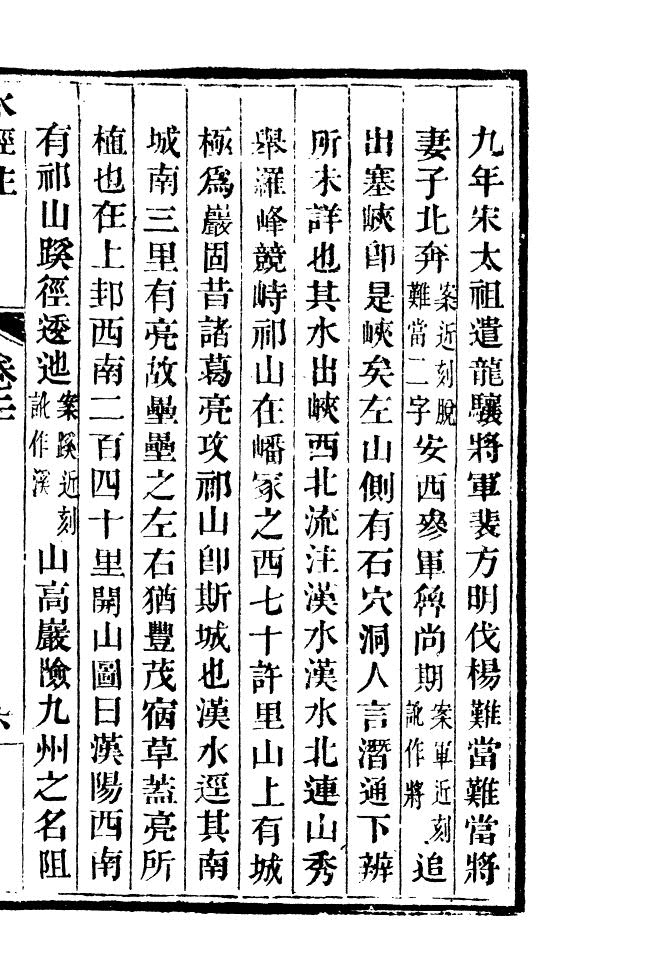 九年宋太祖遣龍驤將軍裴方明伐楊難當難當將
妻子北奔案近刻脫難當二字安西參軍魯尚期案軍近刻訛作將追
出塞峽卽是峽矣左山側有石穴洞人言潛通下辨
所未詳也其水出峽西北流注漢水漢水北連山秀
舉羅峰競峙祁山在嶓冢之西七十許里山上有城
極爲巖固昔諸葛亮攻祁山卽斯城也漢水逕其南
城南三里有亮故壘壘之左右猶豐茂宿草蓋亮所
植也在上邽西南二百四十里開山圖曰漢陽西南
有祁山蹊徑逶迆案蹊近刻訛作溪山高巖險九州之名阻
水經注
卷二
六